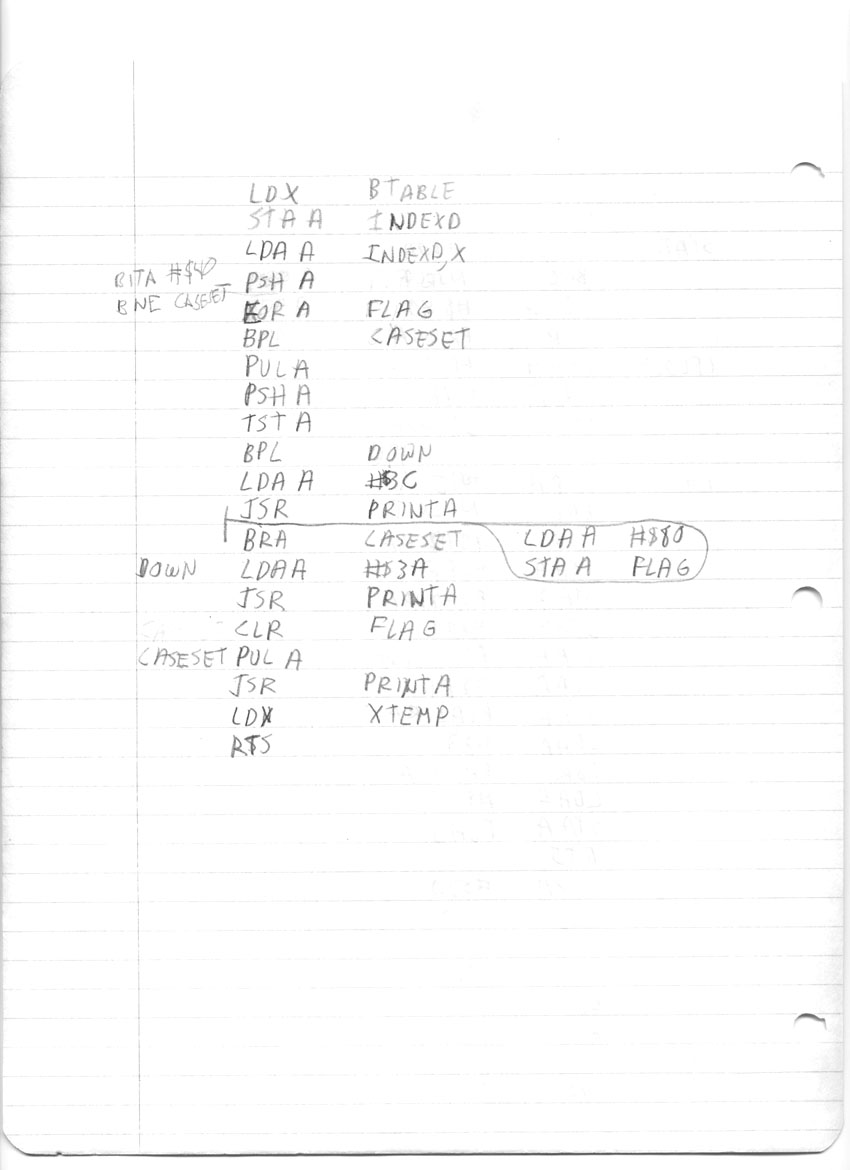 LDX BTABLE
STA A INDEXD
LDA A INDEXD,X
BITA #$40
BNE CASESET
PSH A
EOR A FLAG
BPL CASESET
PUL A
PSH A
TST A
BPL DOWN
LDA A #$3C
JSR PRINTA
BRA CASESET
LDA A #$80
STA A FLAG
DOWN LDAA #$3A
JSR PRINTA
CLR FLAG
CASESET PUL A
JSR PRINTA
LDX XTEMP
RTS